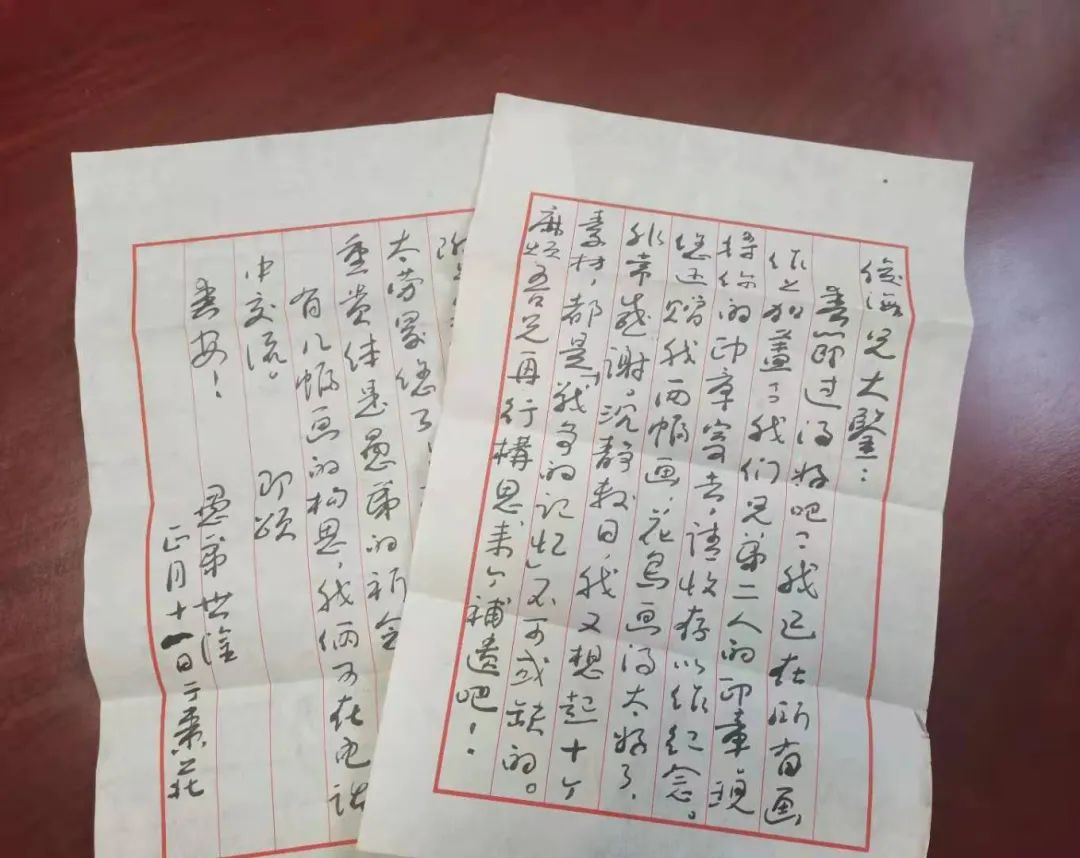 俊海兄大鑒：
春节过得好吧？我已在所有画
作上加盖了我们兄弟二人的印章，现
将你的印章寄去，请收存以作纪念。
您还赠我两幅画，花鸟画得太好了，
非常感谢。沉静数日，我又想起十个
素材，都是「战争的记忆」不可或缺的。
麻烦吾兄再行構思来个補遗吧！
太劳累您了
重贵体是愚弟的祈念
有几幅画的构思，我俩可在电话
中交流。 即颂
春安！
愚弟世淦
正月十一日于枣庄